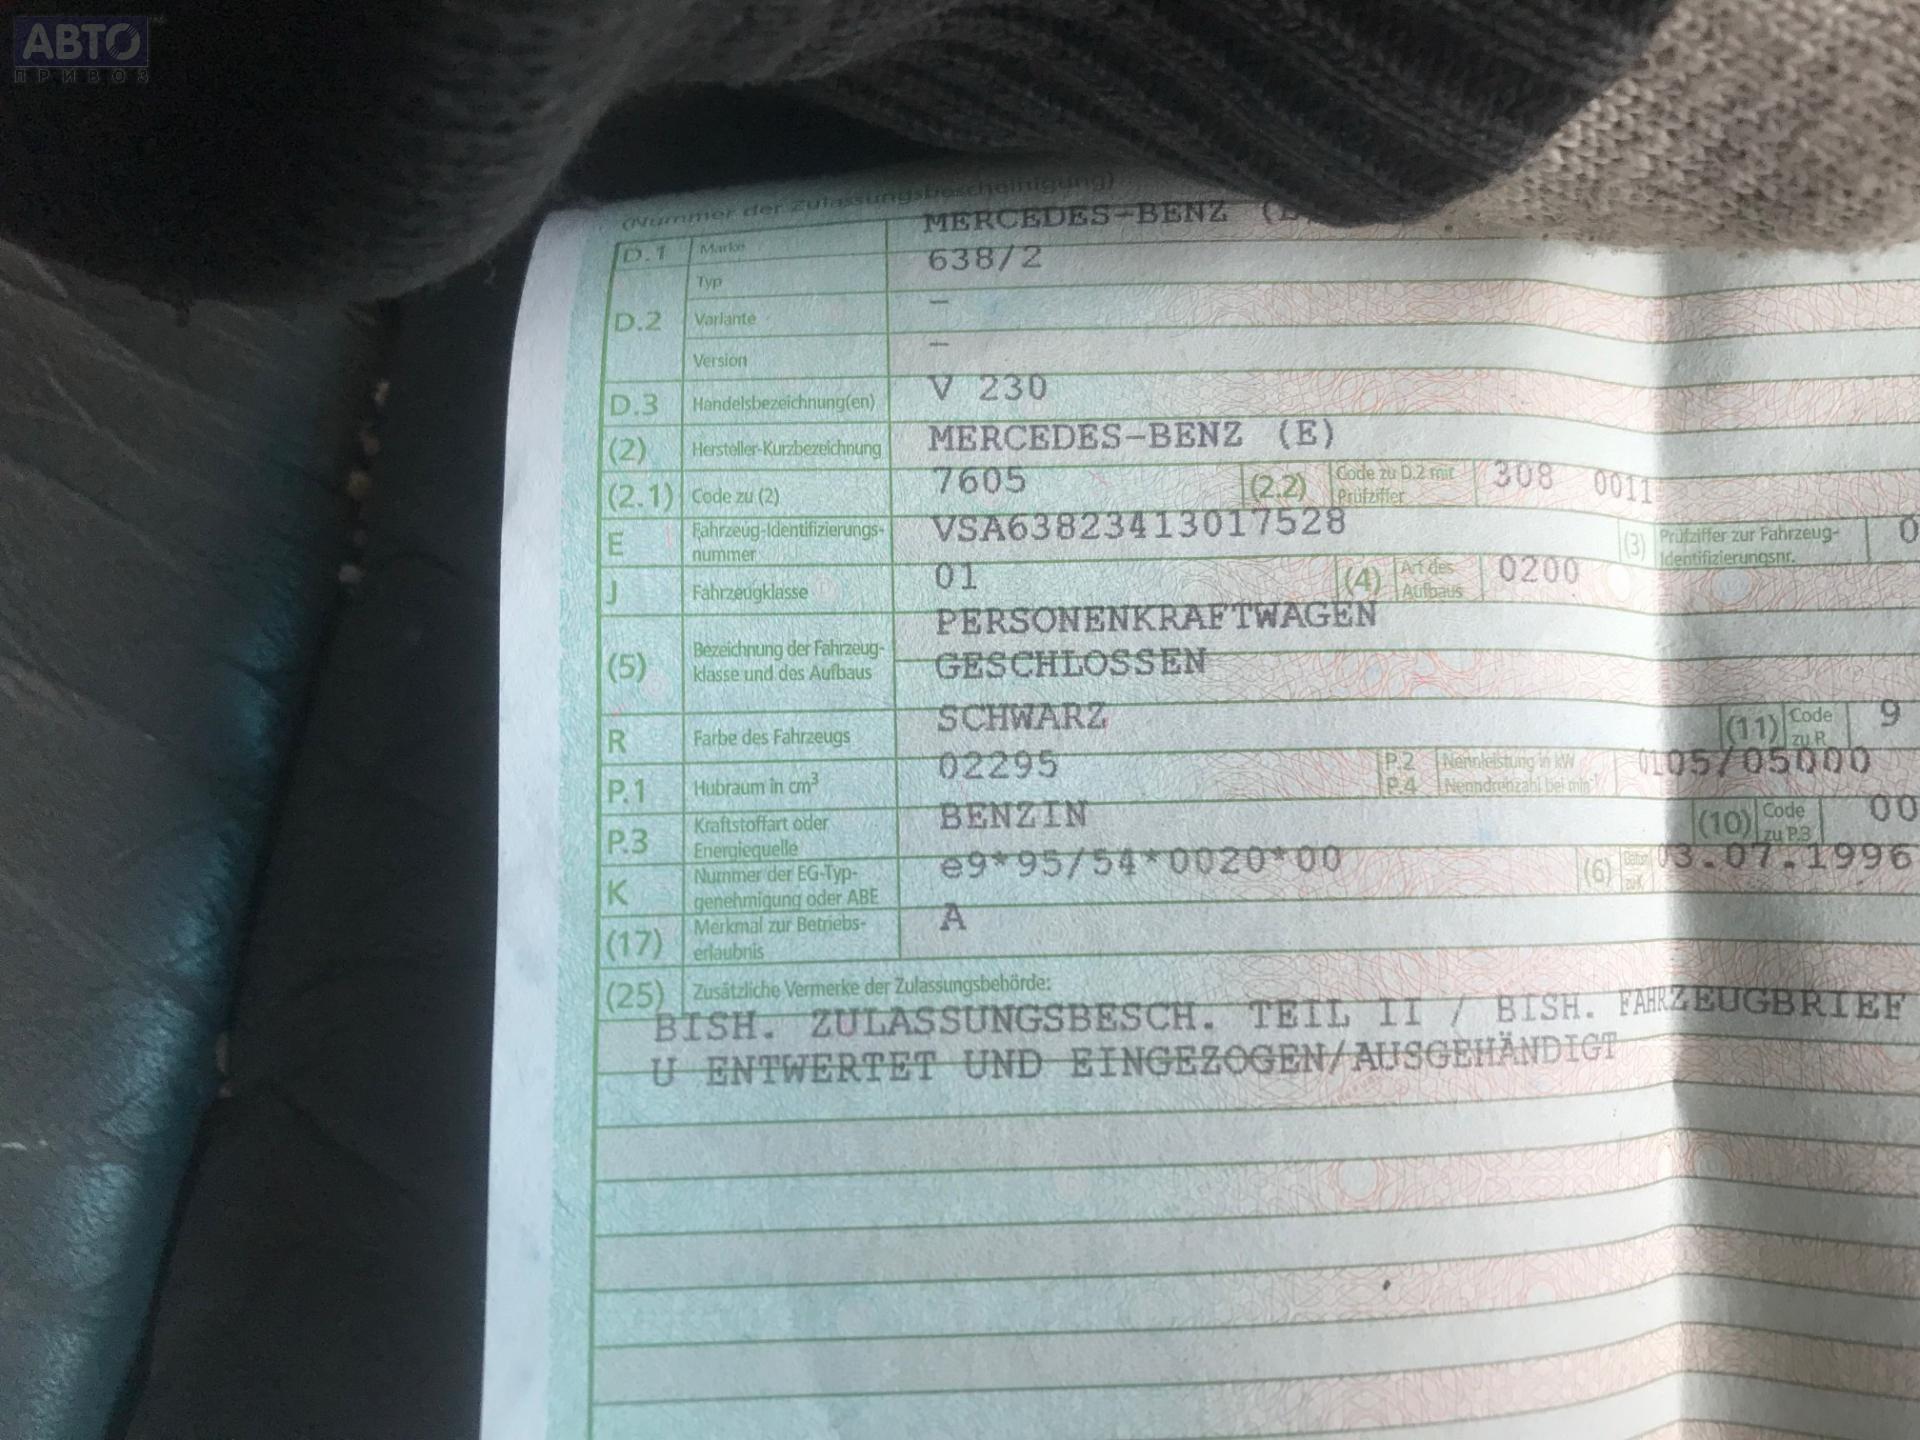 АВТО
ПРИВОЗ
(Nummer der Zulassungsbescheinigung)
D.1 Marke MERCEDES-BENZ
D.2 Typ 638/2
Variante –
Version –
D.3 Handelsbezeichnung(en) V 230
(2) Hersteller-Kurzbezeichnung MERCEDES-BENZ (E)
(2.1) Code zu (2) 7605 (2.2) Code zu D.2 mit Prüfziffer 308 0011
E Fahrzeug-Identifizierungs-nummer VSA63823413017528 (3) Prüfziffer zur Fahrzeug-Identifizierungsnr. 0
J Fahrzeugklasse 01 (4) Art des Aufbaus 0200
(5) Bezeichnung der Fahrzeug-klasse und des Aufbaus PERSONENKRAFTWAGEN
GESCHLOSSEN
R Farbe des Fahrzeugs SCHWARZ (11) Code zu R 9
P.1 Hubraum in cm³ 02295 P.2 Nennleistung in kW P.4 Nenndrehzahl bei min⁻¹ 0105/05000
P.3 Kraftstoffart oder Energiequelle BENZIN (10) Code zu P.3 00
K Nummer der EG-Typ-genehmigung oder ABE e9*95/54*0020*00 (6) Datum zu K 03.07.1996
(17) Merkmal zur Betriebs-erlaubnis A
(25) Zusätzliche Vermerke der Zulassungsbehörde:
BISH. ZULASSUNGSBESCH. TEIL II / BISH. FAHRZEUGBRIEF
U ENTWERTET UND EINGEZOGEN/AUSGEHÄNDIGT